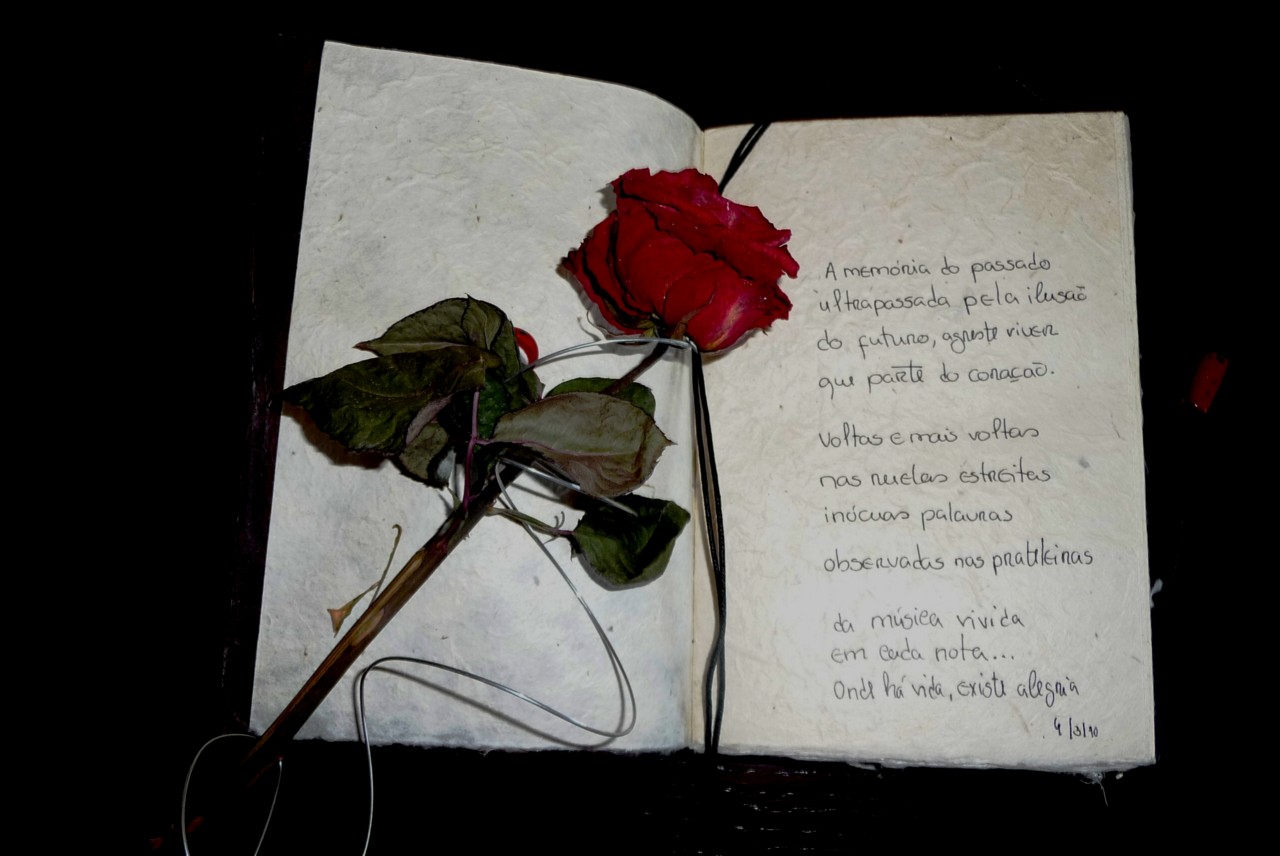 A memória do passado
ultrapassada pela ilusão
do futuro, agreste viver
que parte do coração.
Voltas e mais voltas
nas ruelas estreitas
inócuas palavras
observadas nas prateleiras
da música vivida
em cada nota...
Onde há vida, existe alegria
4/3/10